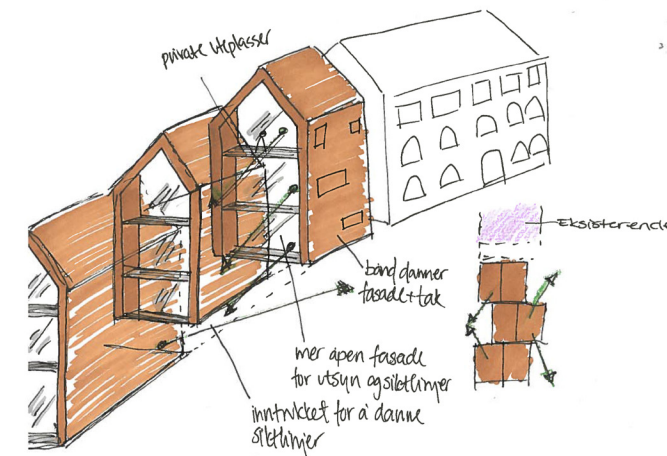 private uteplasser
Eksisterende
bånd danner
fasade+tak
mer åpen fasade
for utsyn og siktlinjer
inntrukket for å danne
siktlinjer